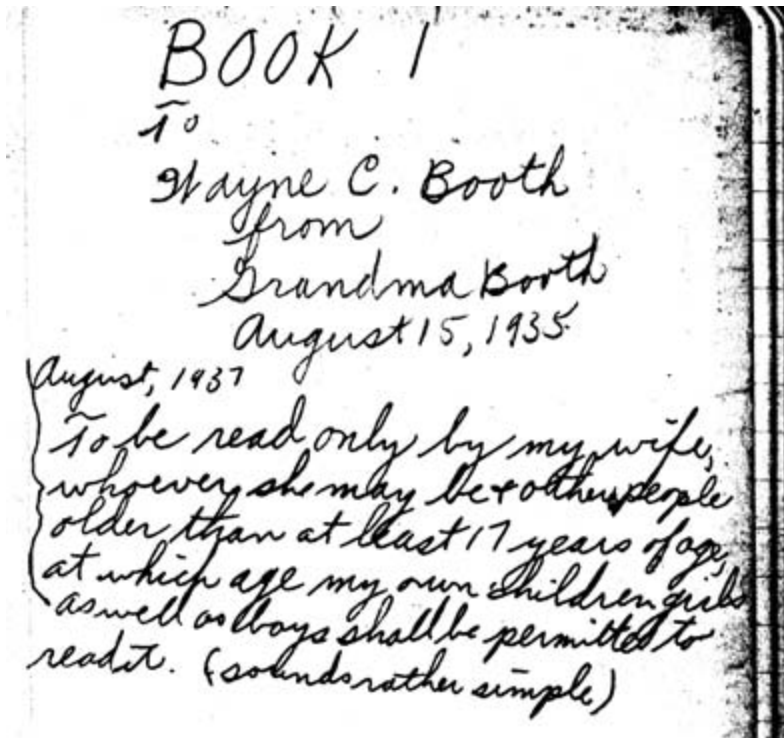 BOOK 1
To
Wayne C. Booth
from
Grandma Booth
August 15, 1935
August, 1937
To be read only by my wife,
whoever she may be & other people
older than at least 17 years of age,
at which age my own children girls
as well as boys shall be permitted to
read it. (sounds rather simple)